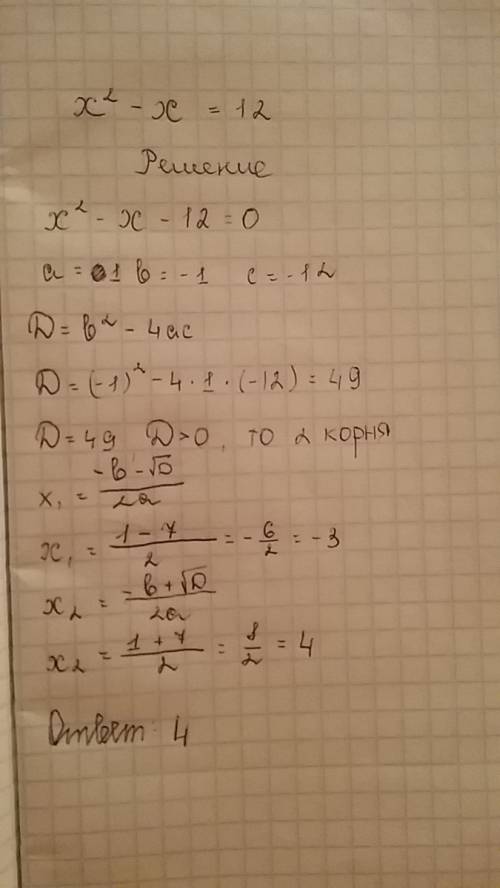 x² - x = 12
Решение
x² - x - 12 = 0
a = 1 b = -1 c = -12
D = b² - 4ac
D = (-1)² - 4 · 1 · (-12) = 49
D = 49 D > 0, то 2 корня
x₁ = (-b - √D)/2a
x₁ = (1 - 7)/2 = -6/2 = -3
x₂ = (-b + √D)/2a
x₂ = (1 + 7)/2 = 8/2 = 4
Ответ: 4